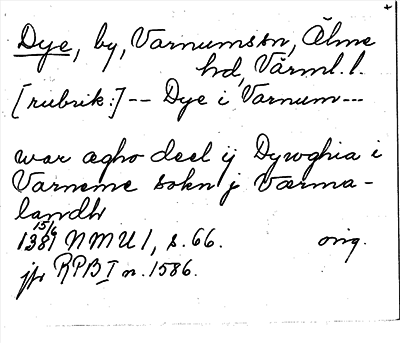 Dye, by, Varnums sn, Älme
hd, Värml. l.
[rubrik:] -- Dye i Varnum ---
war ægho deel ij Dywghia i
Varneme sokn j Værma-
landh
15/6
1381 NMU 1, s. 66. orig.
jfr RPB I nr. 1586.